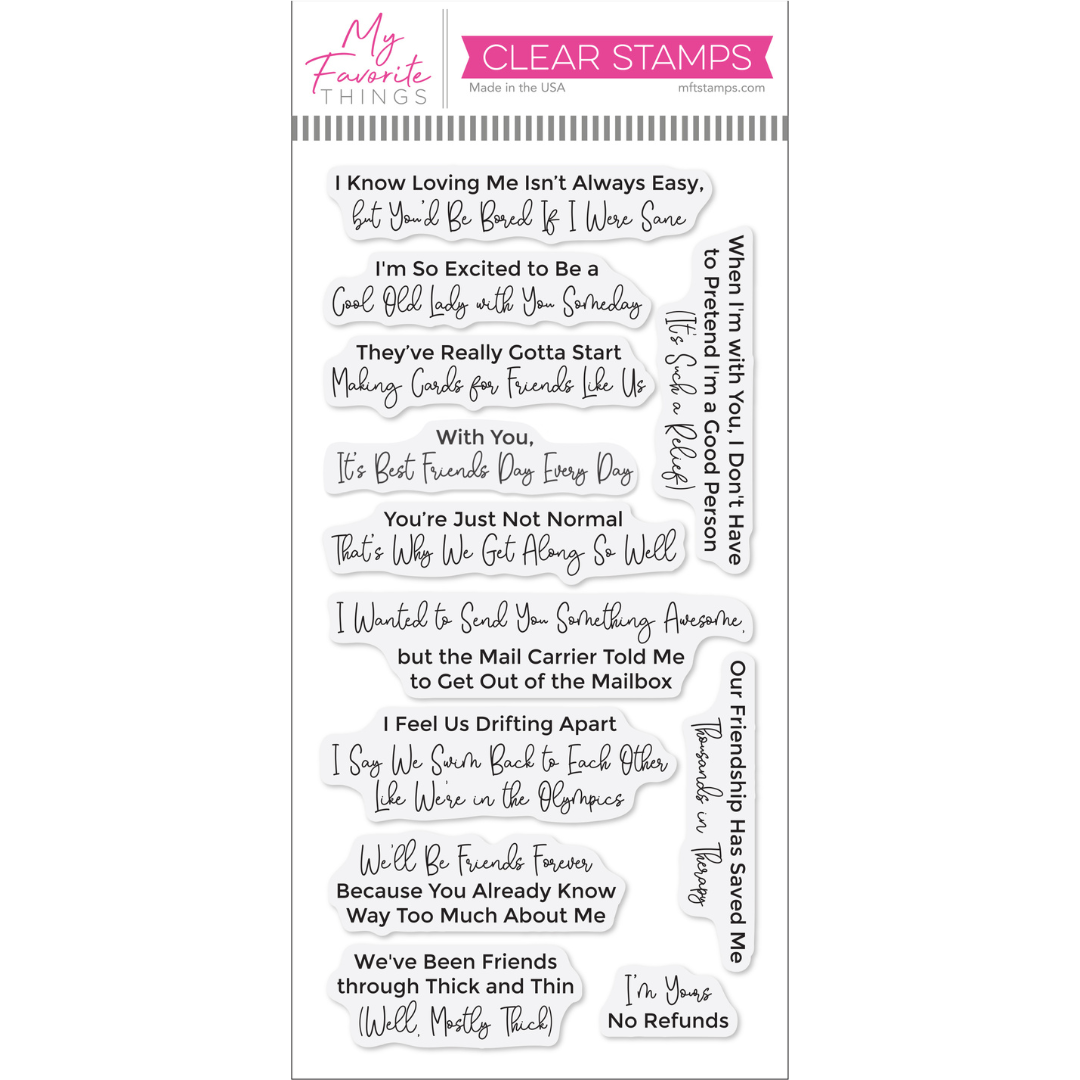 My
Favorite
THINGS
CLEAR STAMPS
Made in the USA
mftstamps.com
I Know Loving Me Isn't Always Easy,
but You'd Be Bored If I Were Sane
I'm So Excited to Be a
Cool Old Lady with You Someday
They've Really Gotta Start
Making Cards for Friends Like Us
With You,
It's Best Friends Day Every Day
You're Just Not Normal
That's Why We Get Along So Well
When I'm with You, I Don't Have
to Pretend I'm a Good Person
(It's Such a Relief)
I Wanted to Send You Something Awesome,
but the Mail Carrier Told Me
to Get Out of the Mailbox
I Feel Us Drifting Apart
I Say We Swim Back to Each Other
Like We're in the Olympics
Our Friendship Has Saved Me
Thousands in Therapy
We'll Be Friends Forever
Because You Already Know
Way Too Much About Me
We've Been Friends
through Thick and Thin
(Well, Mostly Thick)
I'm Yours
No Refunds